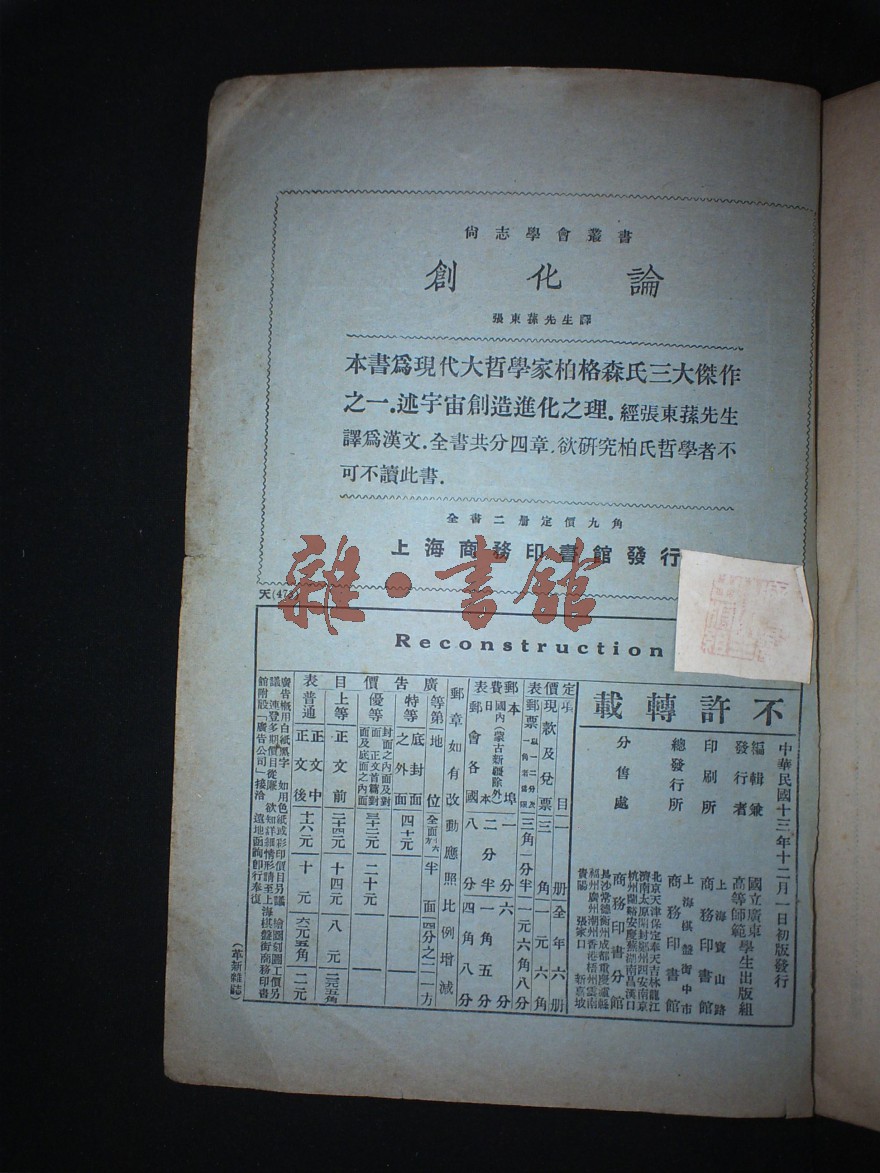 尙志學會叢書
創化論
張東蓀先生譯
本書爲現代大哲學家柏格森氏三大傑作
之一.述宇宙創造進化之理.經張東蓀先生
譯爲漢文.全書共分四章.欲硏究柏氏哲學者不
可不讀此書.
全書二册定價九角
上海商務印書館發行
雜·書館
天(47
Reconstruction
不許轉載
中華民國十三年十二月一日初版發行
編輯兼
發行者
國立廣東
高等師範學生出版組
印刷所
上海寶山路
商務印書館
總發行所
上海棋盤街中市
商務印書館
分售處
北京天津保定奉天吉林龍江
濟南太原開封鄭州西安南京
杭州蘭谿安慶蕪湖南昌漢口
商務印書分館
長沙常德衡州成都重慶瀘縣
福州廣州潮州香港梧州雲南
貴陽 張家口 新嘉坡
定價表
項目 一册 全年六册
現款及兌票 三角 一元六角
郵票 三角一分半 一元六角八分
郵費表
本埠 一分 六分
國內(蒙古新疆除外) 日本 二分半 一角五分
郵會各國 八分 四角八分
郵章如有改動應照比例增減
廣告價目表
等第 地位 全面 半面 四分之一 一方
特等 底封面之外面 四十元
優等 封面之內面及對面 正文首篇對面及底面之內面 三十二元 二十元
上等 正文前 二十四元 十四元 八元 二元五角
普通 正文中 正文後 十六元 十元 六元五角 二元
廣告槪用白紙黑字 如用色紙或彩印價目另議 繪圖刻圖工價另
議 連登多期價目從廉 欲知詳細情形請至上海棋盤街商務印書
館附設「廣告公司」接洽 遠地函詢卽行奉復
(革新雜誌)